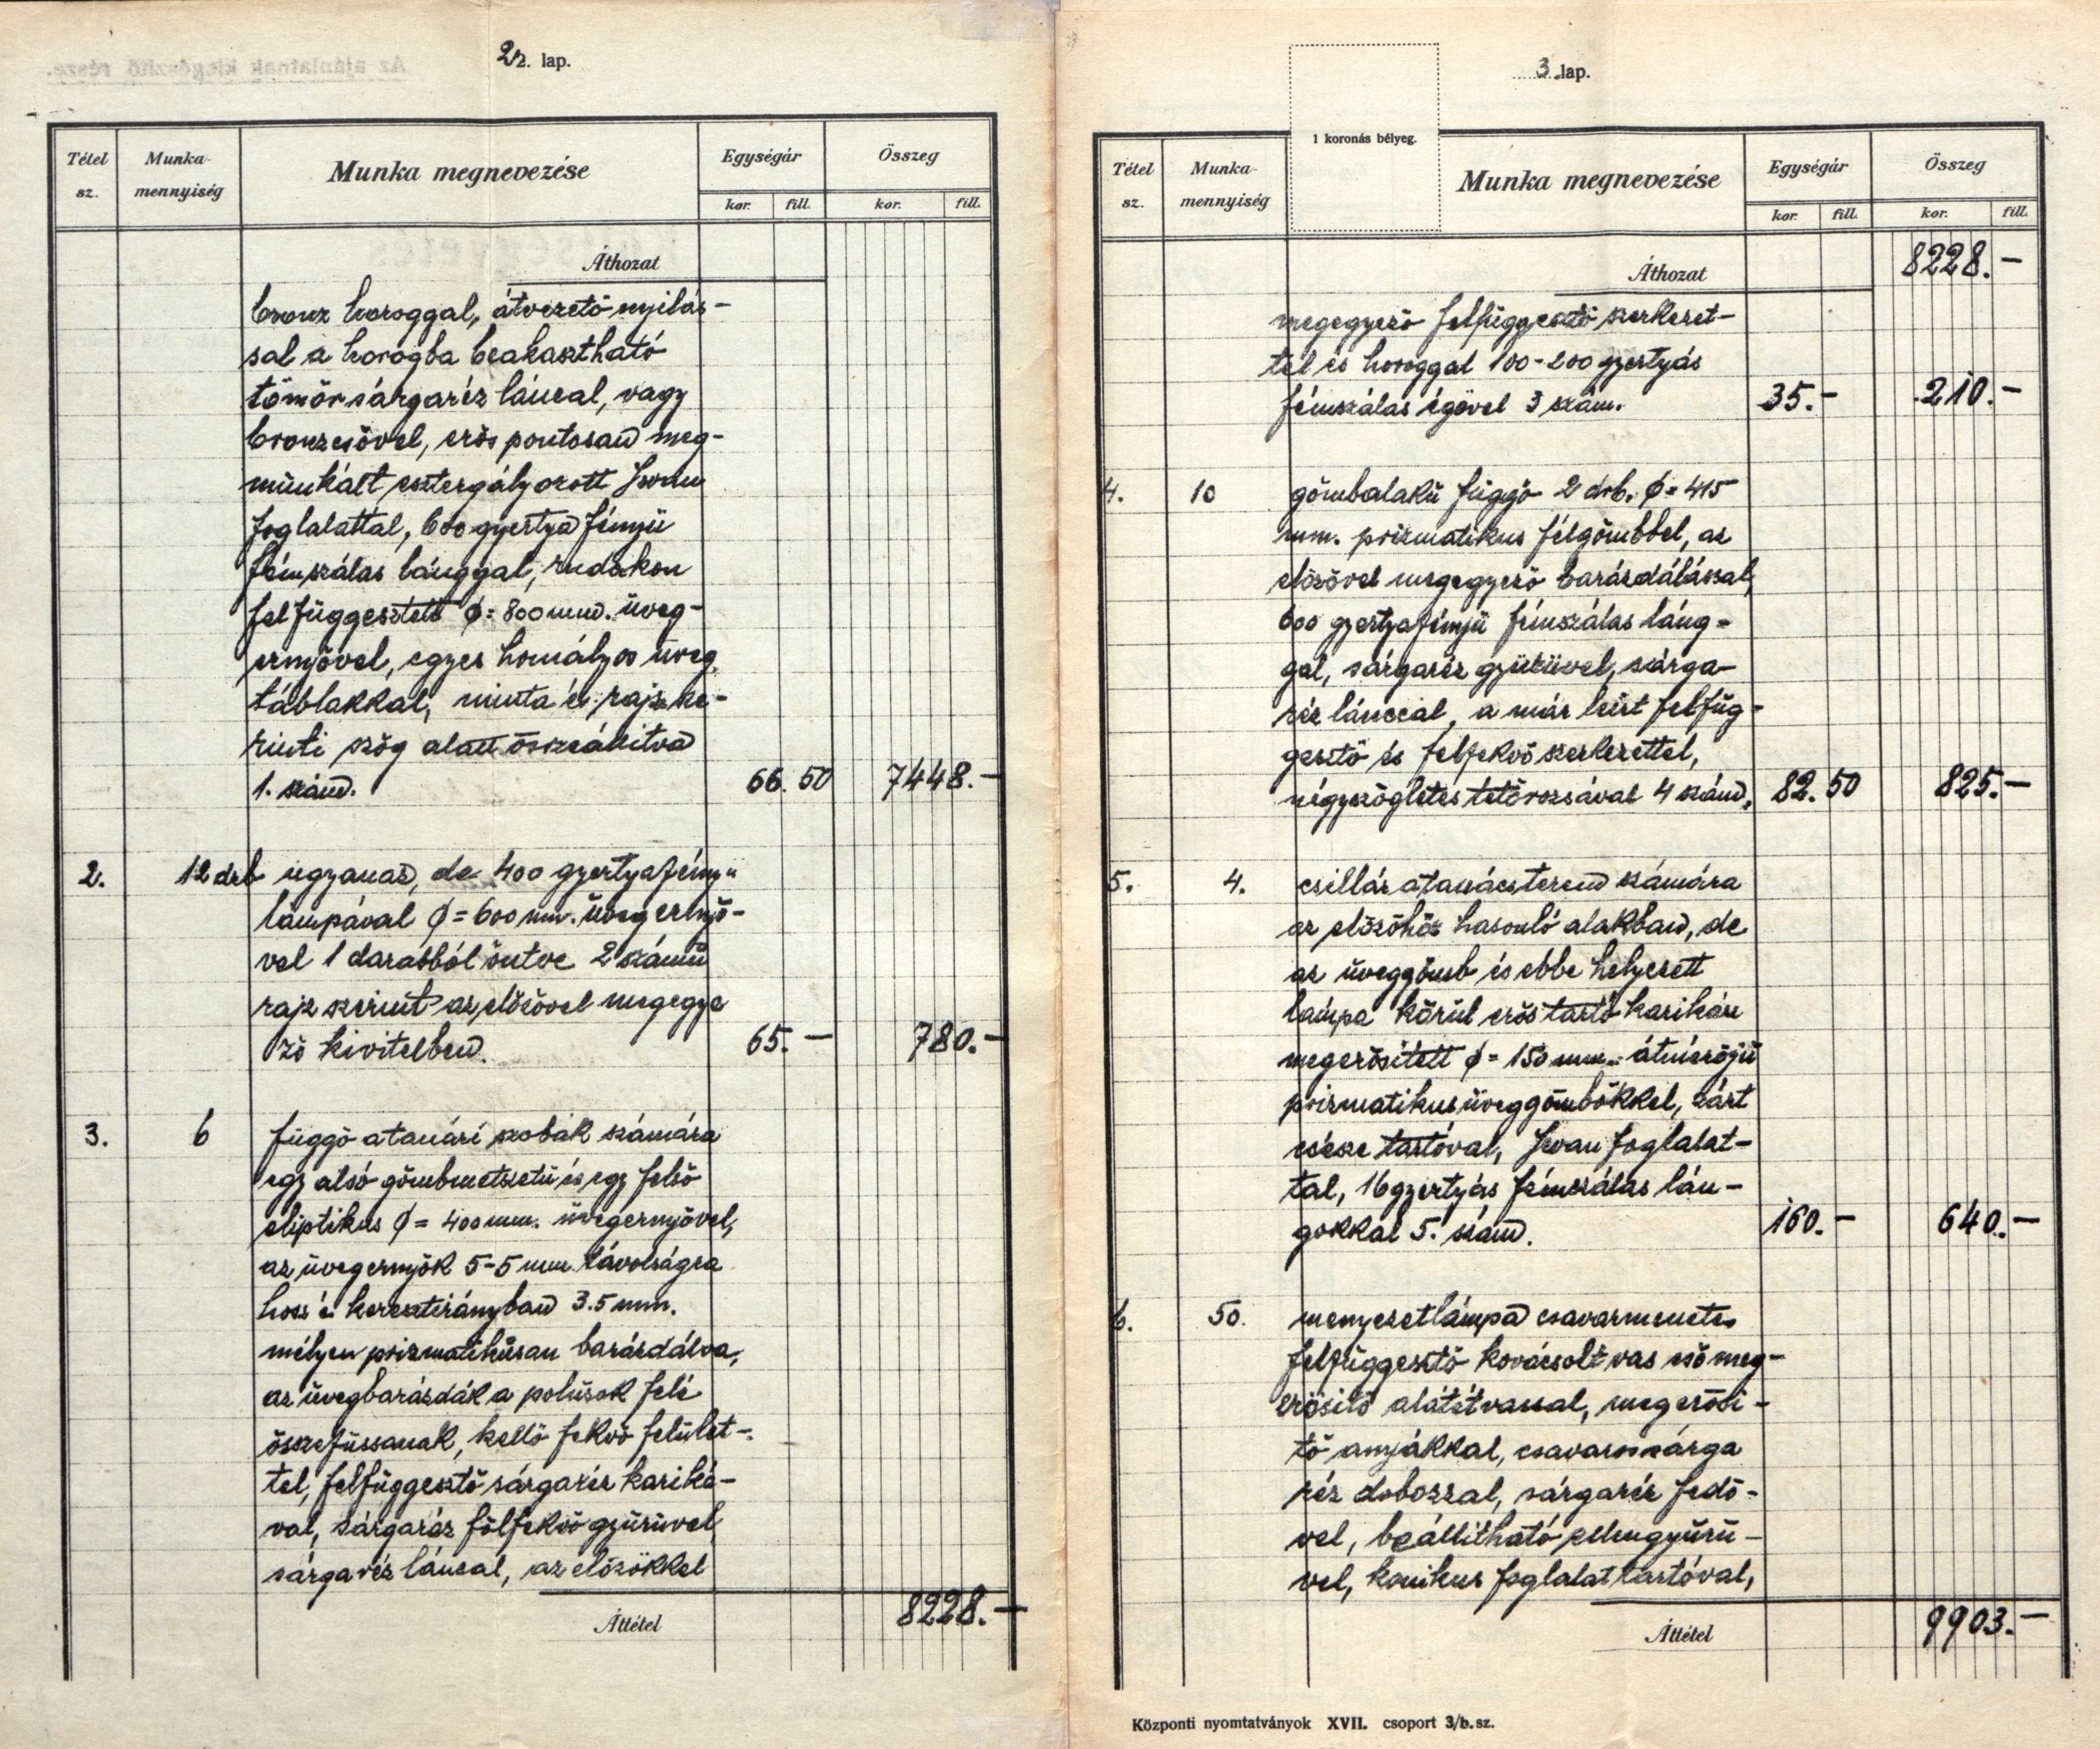 22. lap.
Tétel sz.
Munka-mennyiség
Munka megnevezése
Egységár
Összeg
kor. fill. kor. fill.
Áthozat
bronz horoggal, átvezető nyilás-
sal a horogba beakasztható
tömör sárgaréz láncal, vagy
bronzcsővel, erős pontosan meg-
munkált esztergályozott Swan
foglalattal, 600 gyertya fényü
fémszálas lánggal, rudakon
felfüggesztett ϕ = 800 mm. üveg-
ernyővel, egyes homályos üveg
táblakkal, minta és rajz sze-
rinti szög alatt összeállitva
1. szám. 66.50 7448.-
2. 12 drb ugyanaz, de 400 gyertyafényü
lámpával ϕ = 600 mm. üvegernyő-
vel 1 darabból öntve 2 számú
rajz szerint az előzővel megegye
ző kivitelben. 65.- 780.-
3. 6 függő a tanári szobák számára
egy alsó gömbmetszetü és egy felső
eliptikus ϕ = 400 mm. üvegernyővel,
az üvegernyők 5-5 mm távolságra
hossz és keresztirányban 3.5 mm.
mélyen prizmatikusan barázdálva,
az üvegbarázdák a polusok felé
összefussanak, kellő fekvő felület-
tel, felfüggesztő sárgaréz kariká-
val, sárgaréz fölfekvő gyürüvel
sárgaréz láncal, az előzőkkel
Áttétel 8228.-
3. lap.
1 koronás bélyeg.
Tétel sz.
Munka-mennyiség
Munka megnevezése
Egységár
Összeg
kor. fill. kor. fill.
Áthozat 8228.-
megegyező felfüggesztő szerkezet-
tel és horoggal 100-200 gyertyás
fémszálas égővel 3 szám. 35.- 210.-
4. 10 gömbalakú függő 2 drb. ϕ = 415
mm. prizmatikus félgömbbel, az
előzővel megegyező barázdálással,
600 gyertyafényü fémszálas láng-
gal, sárgaréz gyürüvel, sárga-
réz lánccal, a már leirt felfüg-
gesztő és felfekvő szerkezettel,
négyszögletes tetőrozsával 4 szám. 82.50 825.-
5. 4. csillár a tanácsterem számára
az előzőhöz hasonló alakban, de
az üveggömb és ebbe helyezett
lámpa körül erős tartó karikán
megerősitett ϕ = 150 mm. átmérőjü
prizmatikus üveggömbökkel, zárt
csésze tartóval, Swan foglalat-
tal, 16 gyertyás fémszálas lán-
gokkal 5. szám. 160.- 640.-
6. 50. menyezetlámpa csavarmenetes
felfüggesztő kovácsolt vas cső meg-
erősitő alátétvassal, megerősi-
tő anyákkal, csavaros sárga
réz dobozzal, sárgaréz fedő-
vel, beállitható ellengyürü-
vel, konikus foglalat tartóval,
Áttétel 9903.-
Központi nyomtatványok XVII. csoport 3/b. sz.